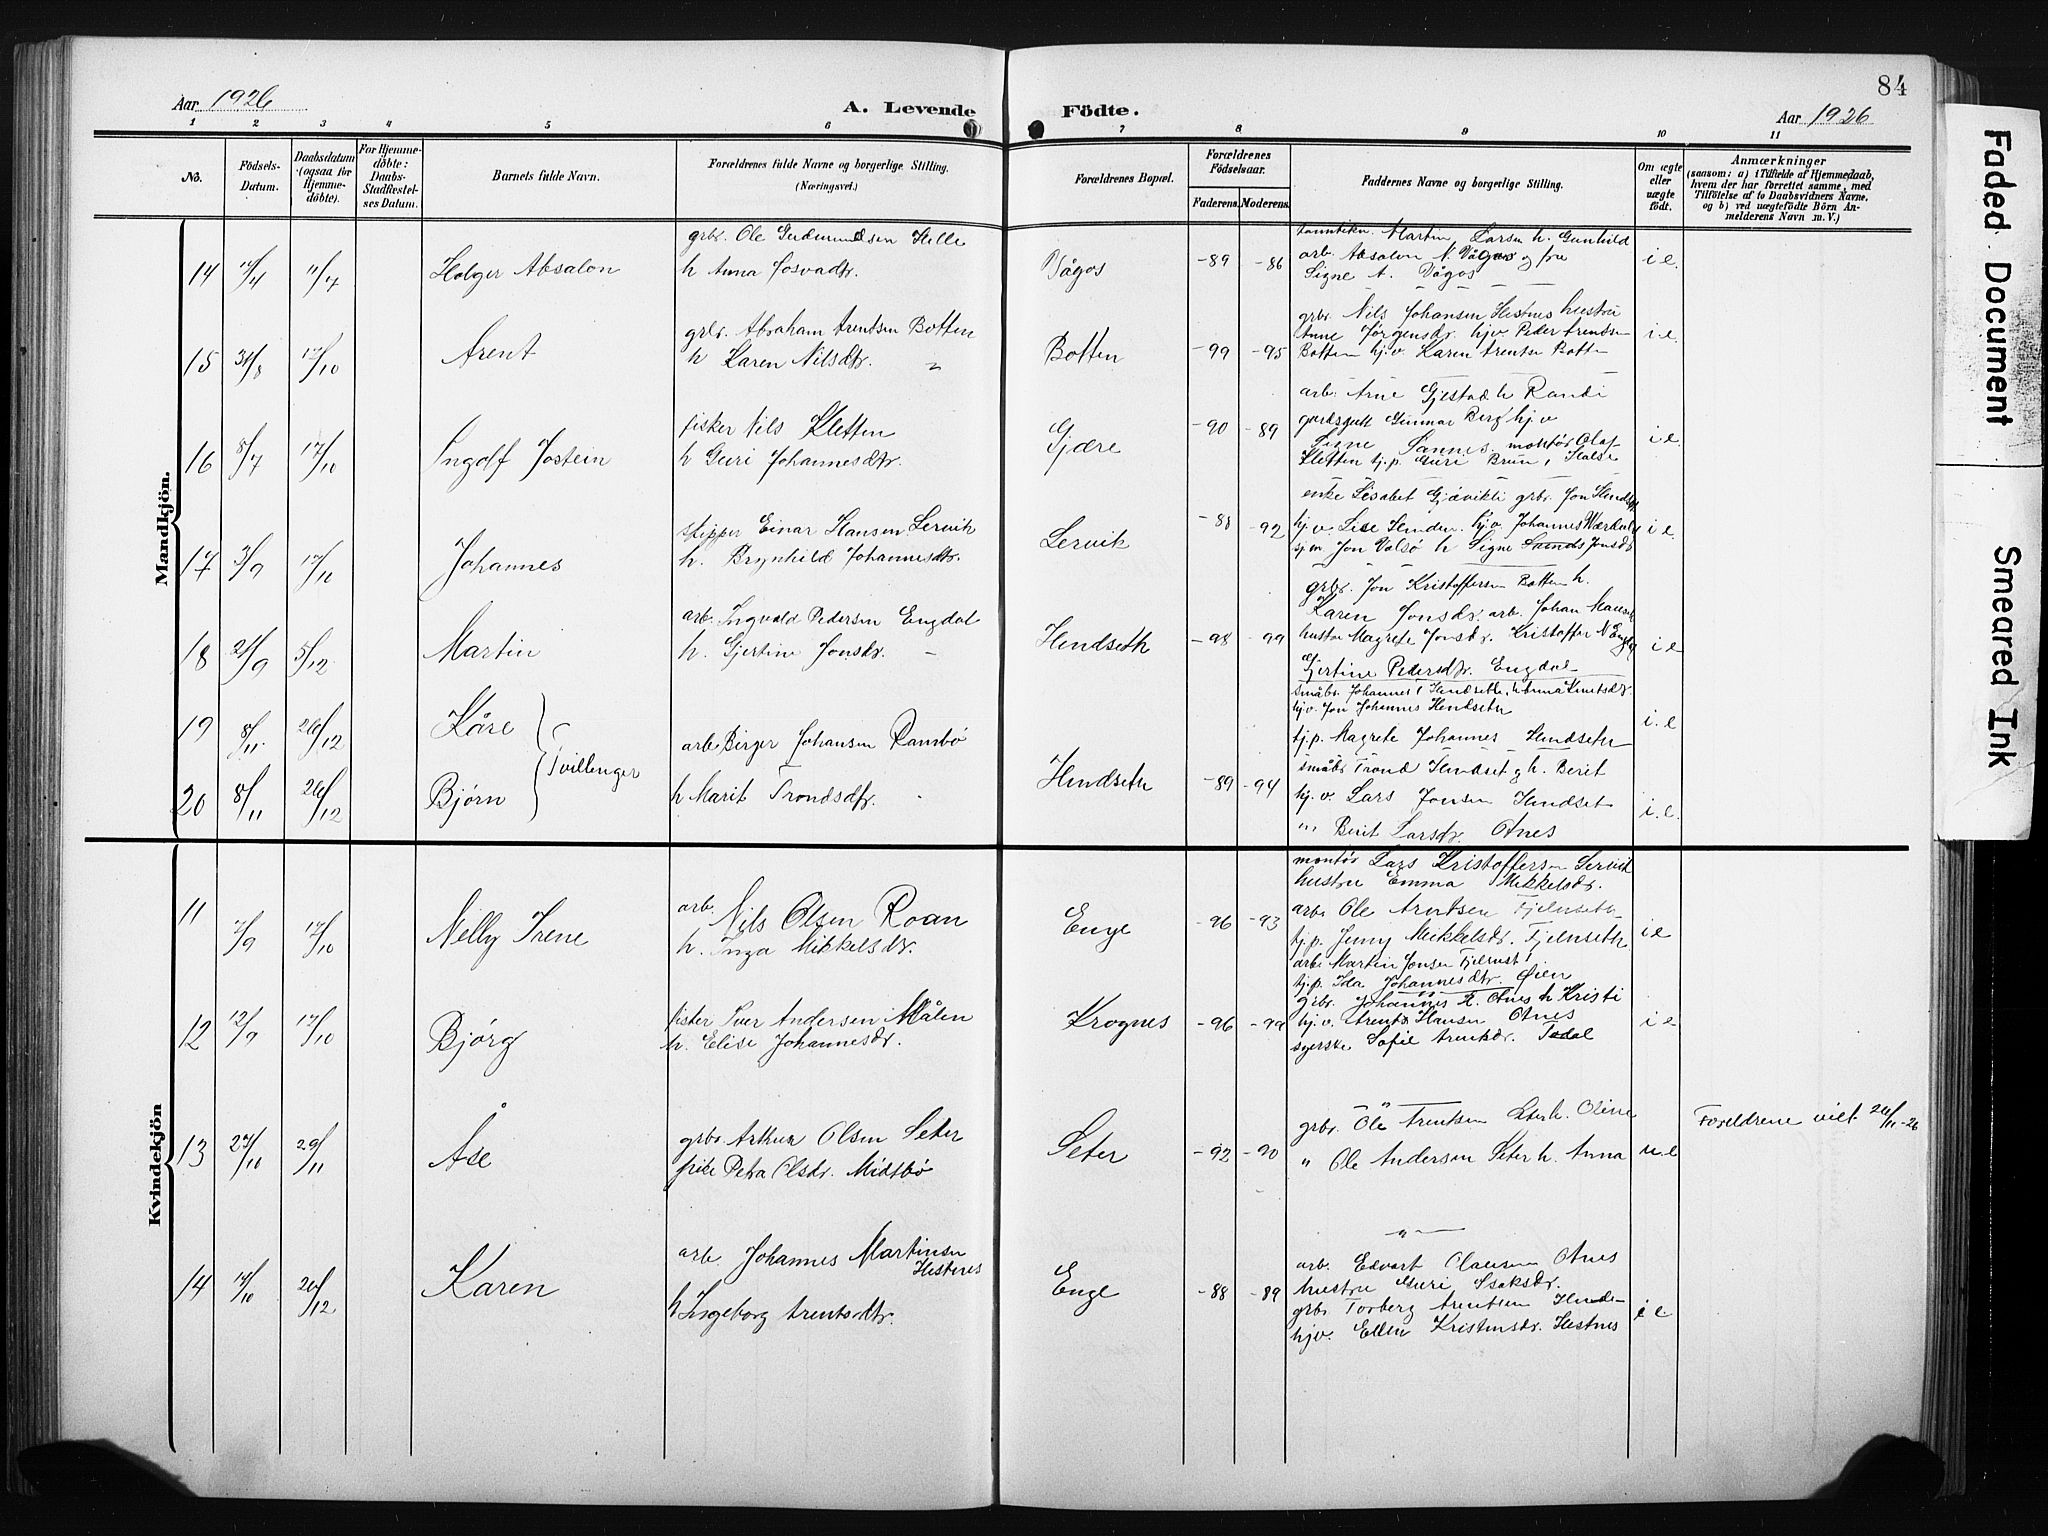 84
Aar 1926 A. Levende Födte. Aar 1926
1 2 3 4 5 6 7 8 9 10 11
No.
Födsels-
Datum.
Daabsdatum
(ogsaa for
Hjemme-
döbte).
For Hjemme-
döbte:
Daabs-
Stadfæstel-
ses Datum.
Barnets fulde Navn.
Forældrenes fulde Navne og borgerlige Stilling.
(Næringsvei.)
Forældrenes Bopæl.
Forældrenes
Födselsaar.
Faderens. Moderens.
Faddernes Navne og borgerlige Stilling.
Om ægte
eller
uægte
født.
Anmærkninger
(saasom: a) i Tilfælde af Hjemmedaab,
hvem der har forrettet samme, med
Tilföielse af to Daabsvidners Navne,
og b) ved uægtefödte Börn An-
melderens Navn m. V.)
Mandkjön.
14 11/7 Holger Absalon
grbr. Ole Gudmundsen Helle
h Anna Josvadtr.
Vågos -89 -86
Martin Larsen h. Gunhild
arb. Absalon N. Vågos og fru
Signe A. Vågos
i e.
15 31/8 17/10 Arent
grbr. Abraham Arentsen Botten
h Karen Nilsdtr. "
Botten -99 -95
grbr. Nils Johansen Hestnes hustru
Anne Jørgensdr. hjv. Peder Arentsen
Botten hj.v. Karen Arentsn Botten
i e.
16 8/7 17/10 Ingolf Jostein
fisker Nils Kletten
h Guri Johannesdtr.
Gjøre -90 -89
arb. Arne Gjestad h Randi
gardsgutt Gunnar Berg hj.v
Signe Sannes. montør Olaf
Kletten tj.p. Guri Brun, Halse
i e.
17 3/9 17/10 Johannes
skipper Einar Hansen Lervik
h. Brynhild Johannesdtr.
Lervik -88 -92
enke Lisabet Gjøvikli grbr. Jon Hendset
hj.v. Lise Henden. hj.v. Johannes
sj.m. Jon Valsø h Signe Jonsdr
i e.
18 21/9 5/12 Martin
arb. Ingvald Pedersen Engdal
h. Gjertine Jonsdr. -
Hendseth -98 -99
grbr. Jon Kristoffersen Botten h.
Karen Jonsdr. arb. Johan
hustru Magrete Jonsdr. Kristoffer N Engdal
Gjertine Pedersdtr. Engdal
i e
19 8/11 26/12 Kåre
20 8/11 26/12 Bjørn
Tvillinger
arb Birger Johansen Rambø
h Marit Trondsdtr. -
Hendseth -89 -94
småbr. Johannes I Hendseth, h Anna Knutsdr.
hj.v. Jon Johannes Hendseth
tj.p. Magrete Johannes Hendseth
i. e
småbr Trond Hendset og h. Berit
hj.v. Lars Jonsen Hendset
" Berit Larsdr. Otnes
i. e.
Kvindekjön
11 7/9 17/10 Nelly Irene
arb. Nils Olsen Roan
h. Inga Mikkelsdr.
Enge -96 -93
montør Lars Kristoffersen Lervik
hustru Emma Mikkelsdr.
arb. Ole Arentsen Fjelnseth
tj.p. Jenny Mikkelsdr. Fjelnseth
arb. Martin Jonsen
tj.p. Ida Johannesdtr. Øien
i e
12 12/9 17/10 Bjørg
fisker Iver Andersen Målen
h. Elise Johannesdr.
Krognes -96 -99
grbr. Johannes E. Otnes h Kristi
hj.v. Arent Hansen Otnes
syerske Sofie Arentsdr. Todal
i e
13 27/10 29/11 Åse
grbr Arthur Olsen Seter
pike Petra Olsdr. Midtbø
Seter -92 -90
grbr. Ole Arentsen Seter h. Oline
" Ole Andersen Seter h. Anna
u. e
Foreldrene viet 26/11-26
14 19/10 26/12 Karen
arb. Johannes Martinsen
Hestnes
h Ingeborg Arentsdtr.
Enge -88 -89
arb. Edvart Olausen Otnes
hustru Guri Isaksdr.
grbr Torberg Arentsen Hende-
hjv. Ellen Kristensdr. Hestnes
i e
Faded Document
Smeared Ink